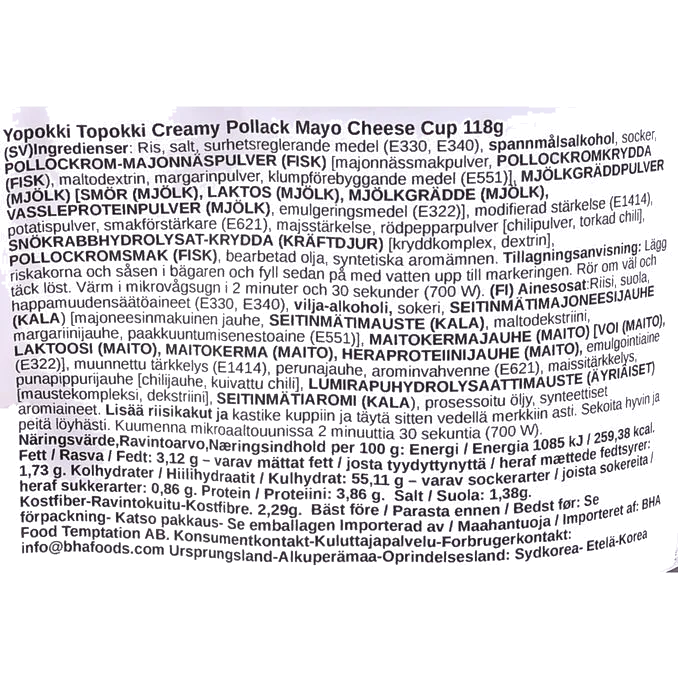 Yopokki Topokki Creamy Pollack Mayo Cheese Cup 118g
(SV)Ingredienser: Ris, salt, surhetsreglerande medel (E330, E340), spannmålsalkohol, socker,
POLLOCKROM-MAJONNÄSPULVER (FISK) [majonnässmakpulver, POLLOCKROMKRYDDA
(FISK), maltodextrin, margarinpulver, klumpförebyggande medel (E551)], MJÖLKGRÄDDPULVER
(MJÖLK) [SMÖR (MJÖLK), LAKTOS (MJÖLK), MJÖLKGRÄDDE (MJÖLK),
VASSLEPROTEINPULVER (MJÖLK), emulgeringsmedel (E322)], modifierad stärkelse (E1414),
potatispulver, smakförstärkare (E621), majsstärkelse, rödpepparpulver [chilipulver, torkad chili],
SNÖKRABBHYDROLYSAT-KRYDDA (KRÄFTDJUR) [kryddkomplex, dextrin],
POLLOCKROMSMAK (FISK), bearbetad olja, syntetiska aromämnen. Tillagningsanvisning: Lägg
riskakorna och såsen i bägaren och fyll sedan på med vatten upp till markeringen. Rör om väl och
täck löst. Värm i mikrovågsugn i 2 minuter och 30 sekunder (700 W). (FI) Ainesosat:Riisi, suola,
happamuudensäätöaineet (E330, E340), vilja-alkoholi, sokeri, SEITINMÄTIMAJONEESIJAUHE
(KALA) [majoneesinmakuinen jauhe, SEITINMÄTIMAUSTE (KALA), maltodekstriini,
margariinijauhe, paakkuuntumisenestoaine (E551)], MAITOKERMAJAUHE (MAITO) [VOI (MAITO),
LAKTOOSI (MAITO), MAITOKERMA (MAITO), HERAPROTEIINIJAUHE (MAITO), emulgointiaine
(E322)], muunnettu tärkkelys (E1414), perunajauhe, arominvahvenne (E621), maissitärkkelys,
punapippurijauhe [chilijauhe, kuivattu chili], LUMIRAPUHYDROLYSAATTIMAUSTE (ÄYRIÄISET)
[maustekompleksi, dekstriini], SEITINMÄTIAROMI (KALA), prosessoitu öljy, synteettiset
aromiaineet. Lisää riisikakut ja kastike kuppiin ja täytä sitten vedellä merkkiin asti. Sekoita hyvin ja
peitä löyhästi. Kuumenna mikroaaltouunissa 2 minuuttia 30 sekuntia (700 W).
Näringsvärde,Ravintoarvo,Næringsindhold per 100 g: Energi / Energia 1085 kJ / 259,38 kcal.
Fett / Rasva / Fedt: 3,12 g – varav mättat fett / josta tyydyttynyttä / heraf mættede fedtsyrer:
1,73 g. Kolhydrater / Hiilihydraatit / Kulhydrat: 55,11 g – varav sockerarter / joista sokereita /
heraf sukkerarter: 0,86 g. Protein / Proteiini: 3,86 g. Salt / Suola: 1,38g.
Kostfiber-Ravintokuitu-Kostfibre. 2,29g. Bäst före / Parasta ennen / Bedst før: Se
förpackning- Katso pakkaus- Se emballagen Importerad av / Maahantuoja / Importeret af: BHA
Food Temptation AB. Konsumentkontakt-Kuluttajapalvelu-Forbrugerkontakt:
info@bhafoods.com Ursprungsland-Alkuperämaa-Oprindelsesland: Sydkorea- Etelä-Korea